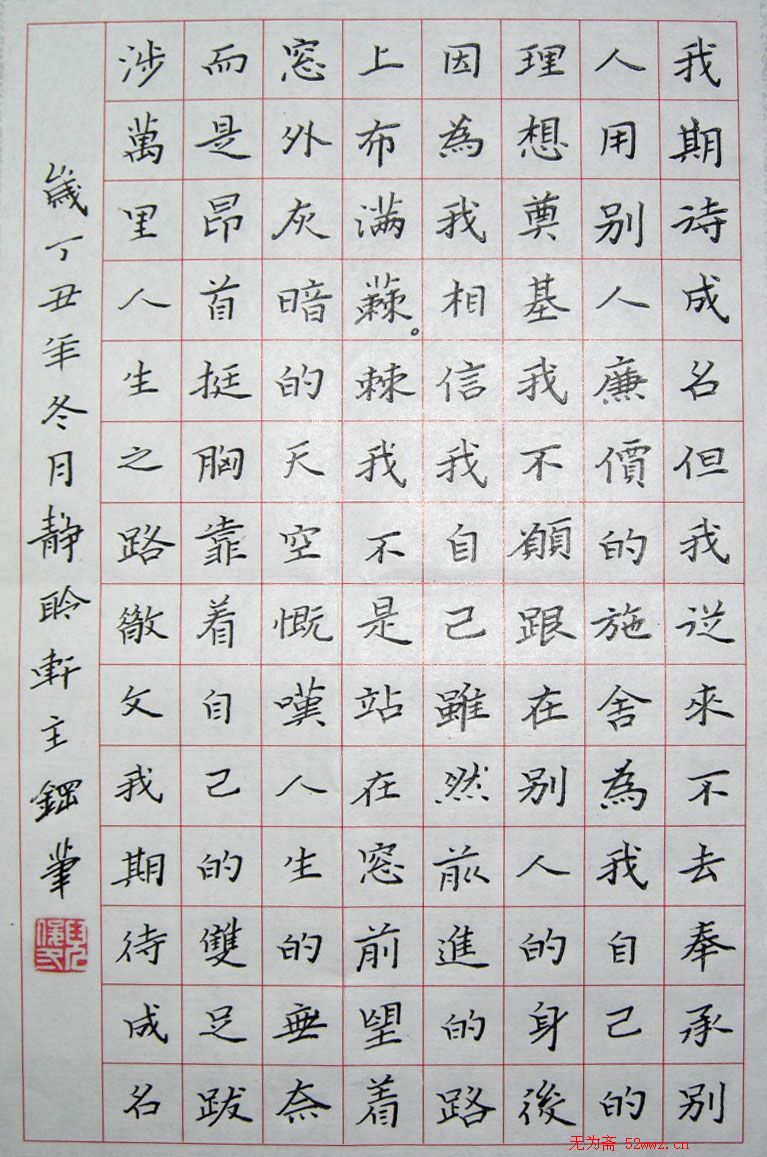 我期诗成名但我從來不去奉承别
人用别人廉價的施舍為我自己的
理想奠基我不願跟在别人的身後
因為我相信我自己雖然前進的路
上布满蕀。棘我不是站在窓前望着
窓外灰暗的天空慨嘆人生的無奈
而是昂首挺胸靠着自己的雙足跋
涉萬里人生之路徹文我期待成名
歲丁丑年冬月静聆軒主鋼筆
无为斋 52wwz.cn